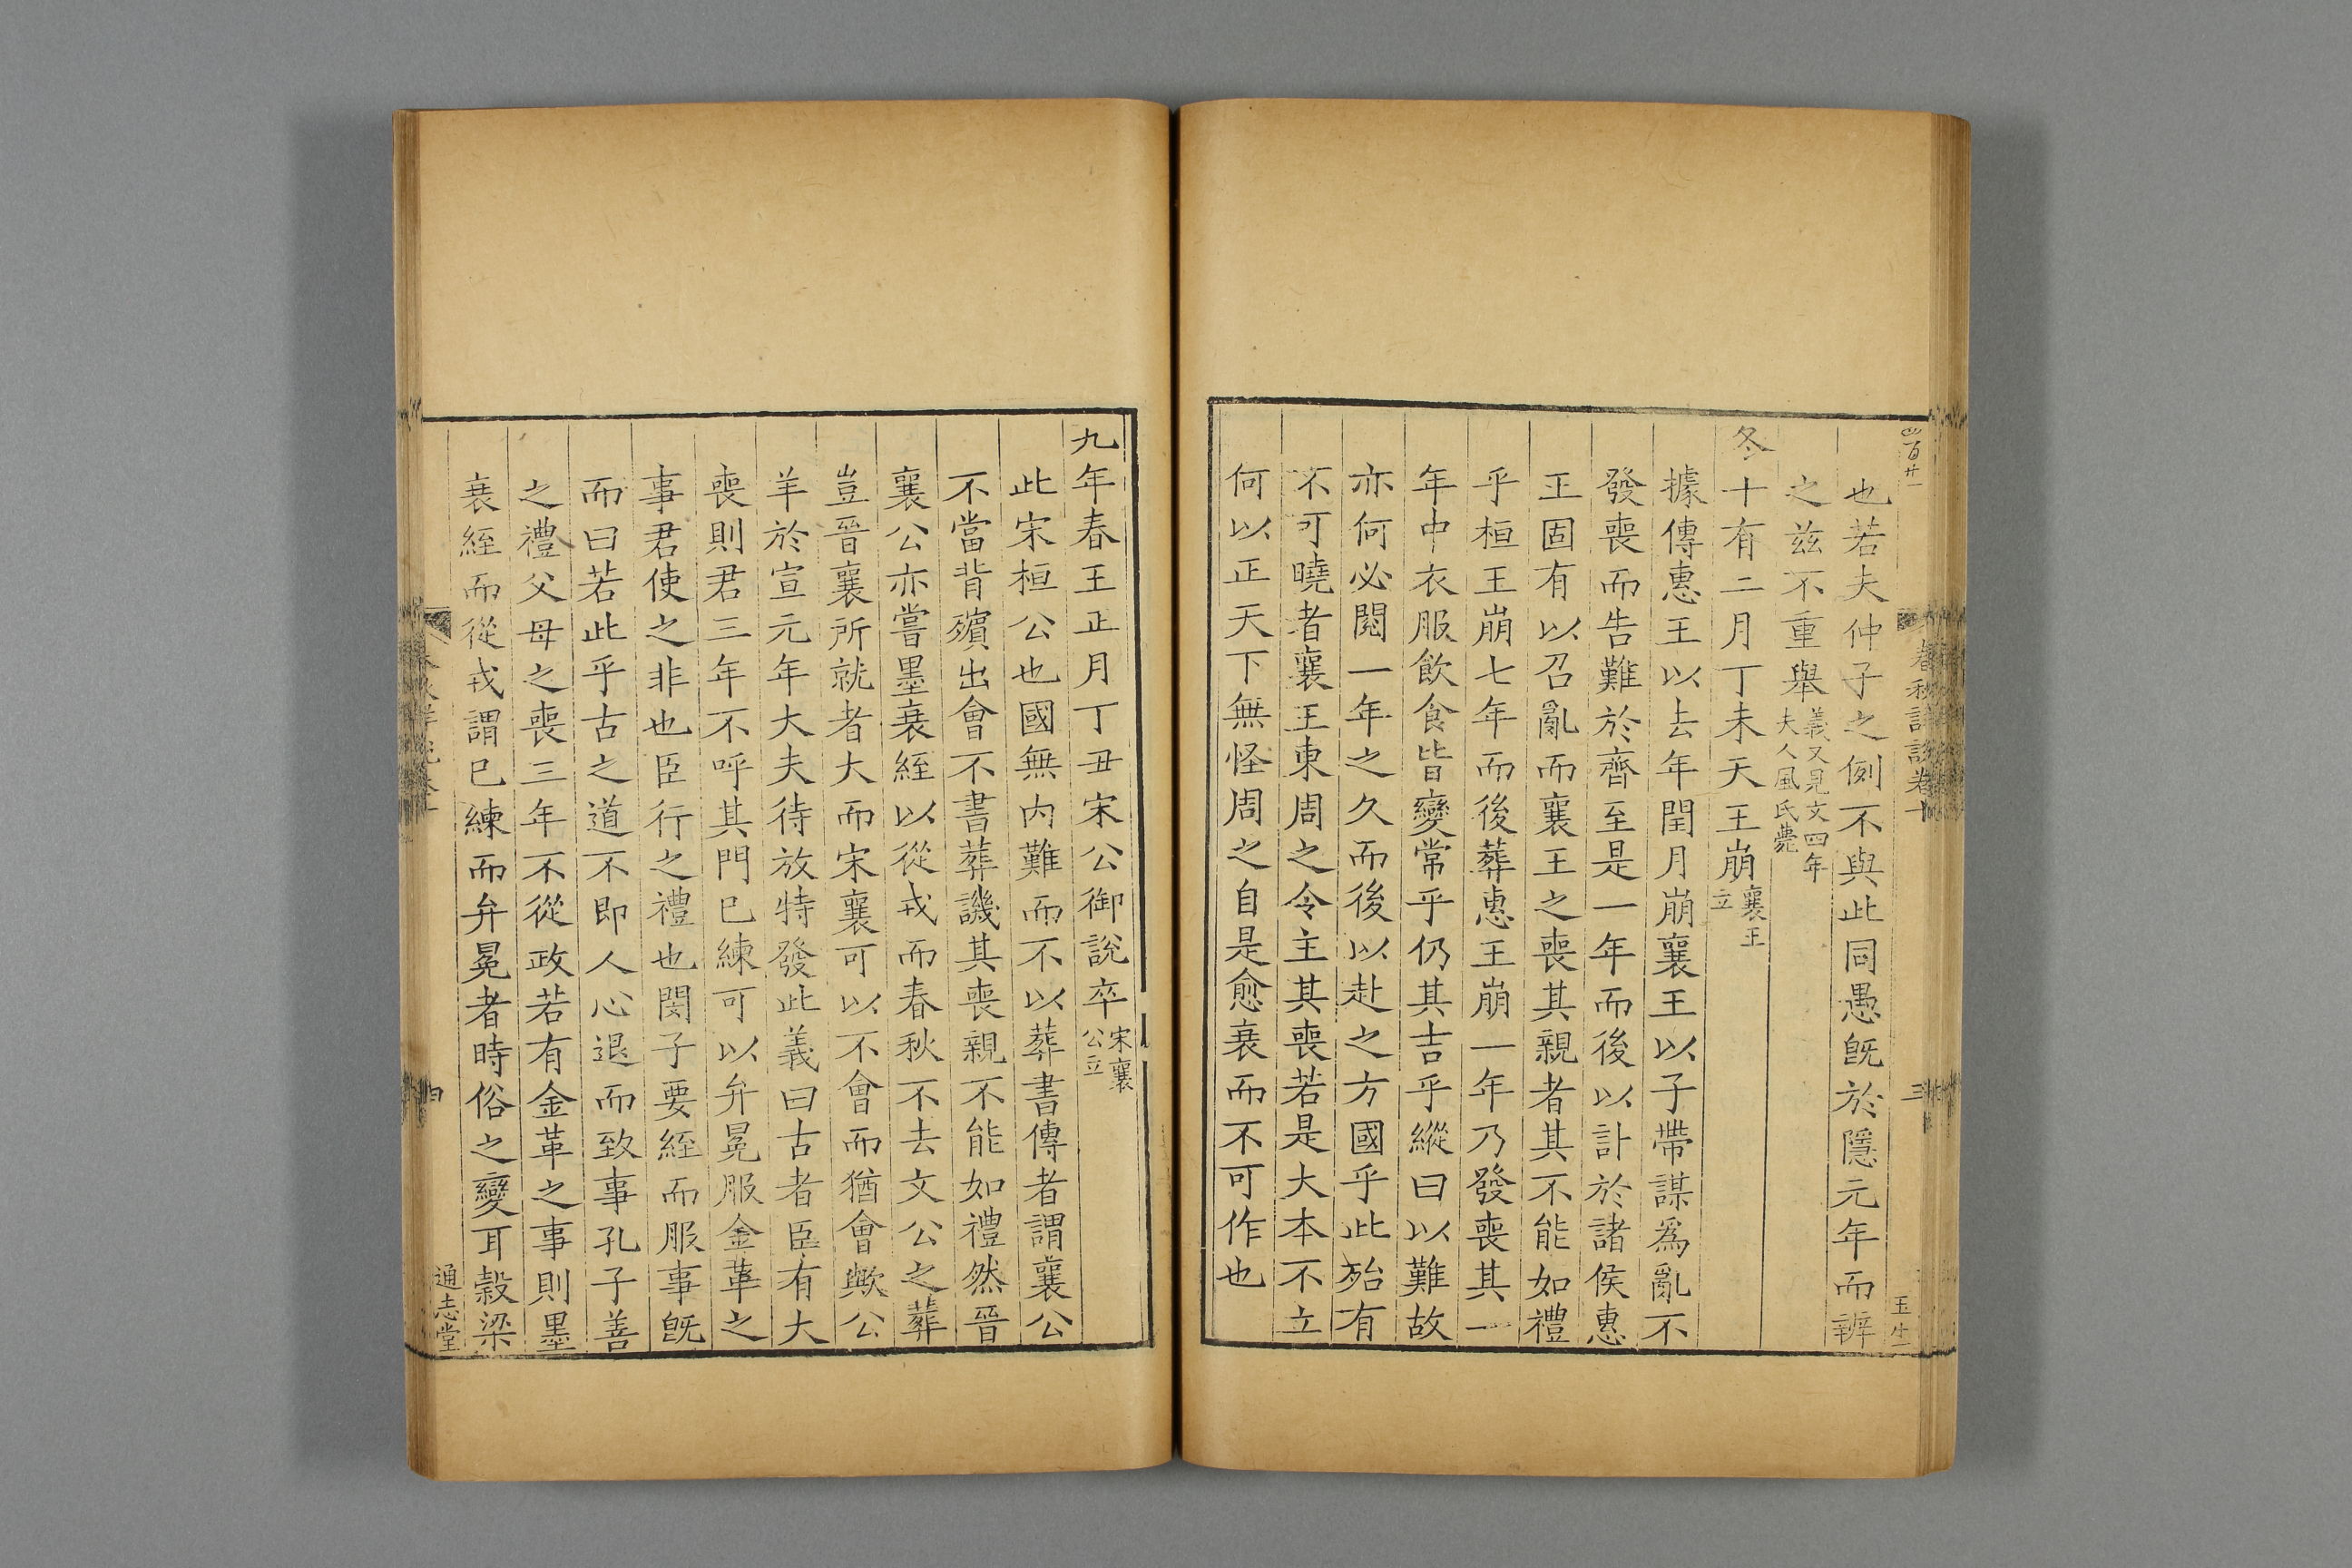 四百廿一
春秋詳說卷十
三
玉生
也若夫仲子之例不與此同愚既於隱元年而辨
之茲不重舉義又見文四年夫人風氏薨
冬十有二月丁未天王崩襄王立
據傳惠王以去年閏月崩襄王以子帶謀爲亂不
發喪而告難於齊至是一年而後以訃於諸侯惠
王固有以召亂而襄王之喪其親者其不能如禮
乎桓王崩七年而後葬惠王崩一年乃發喪其一
年中衣服飲食皆變常乎仍其吉乎縱曰以難故
亦何必閱一年之久而後以赴之方國乎此殆有
不可曉者襄王東周之令主其喪若是大本不立
何以正天下無怪周之自是愈衰而不可作也
九年春王正月丁丑宋公御說卒宋襄公立
此宋桓公也國無內難而不以葬書傳者謂襄公
不當背殯出會不書葬譏其喪親不能如禮然晉
襄公亦嘗墨衰絰以從戎而春秋不去文公之葬
豈晉襄所就者大而宋襄可以不會而猶會歟公
羊於宣元年大夫待放特發此義曰古者臣有大
喪則君三年不呼其門已練可以弁冕服金革之
事君使之非也臣行之禮也閔子要絰而服事既
而曰若此乎古之道不即人心退而致事孔子善
之禮父母之喪三年不從政若有金革之事則墨
衰絰而從戎謂已練而弁冕者時俗之變耳穀梁
春秋詳說卷十
四
通志堂